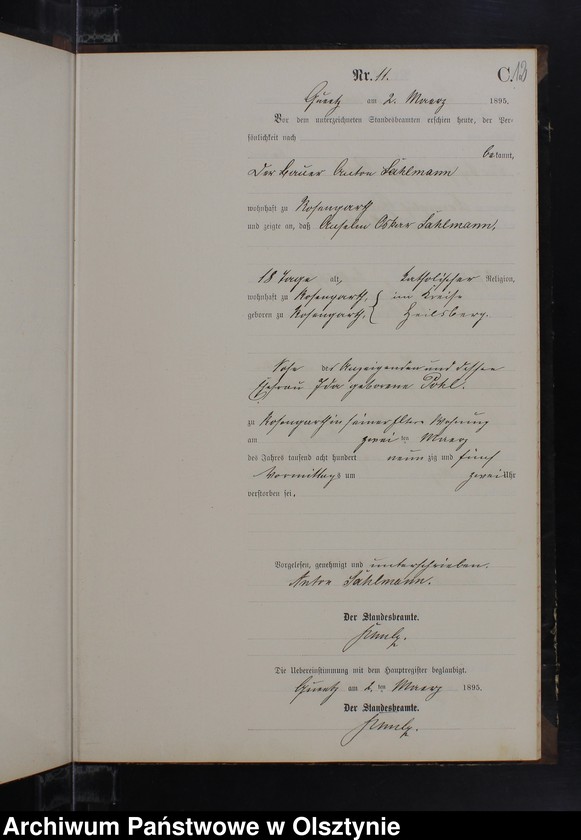 Nr. 11.
C. 13
Queetz am 2. Maerz 1895.
Vor dem unterzeichneten Standesbeamten erschien heute, der Per-
sönlichkeit nach
bekannt,
Der Bauer Anton Lahlmann
wohnhaft zu Rosengarth
und zeigte an, daß Anselm Oskar Lahlmann,
18 Tage alt, katholischer Religion,
wohnhaft zu Rosengarth, im Kreise
geboren zu Rosengarth, Heilsberg.
Sohn des Anzeigenden und dessen
Ehefrau Ida geborene Pohl.
zu Rosengarth in seiner Eltern Wohnung
am zwei ten Maerz
des Jahres tausend acht hundert neun zig und fünf
Vormittags um zwei Uhr
verstorben sei.
Vorgelesen, genehmigt und unterschrieben.
Anton Lahlmann.
Der Standesbeamte.
Die Uebereinstimmung mit dem Hauptregister beglaubigt.
Queetz am 2. ten Maerz 1895.
Der Standesbeamte.
Archiwum Państwowe w Olsztynie